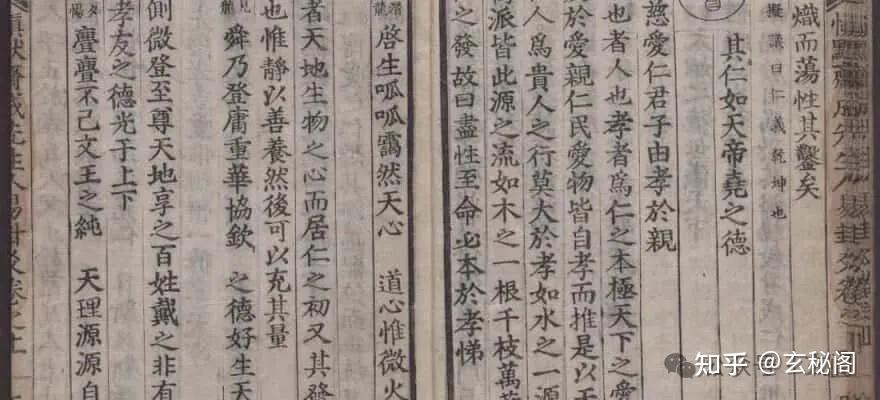 熾而蕩性其鑿矣
擬議曰仁義乾坤也
其仁如天帝堯之德
慈愛仁君子由孝於親
也者人也孝者爲仁之本極天下之愛
於愛親仁民愛物皆自孝而推是以天
人爲貴人之行莫大於孝如水之一源
派皆此源之流如木之一根千枝萬
之發故曰盡性至命必本於孝悌
潛龍
啓生呱呱靄然天心 道心惟微火
者天地生物之心而居仁之初又其發
也惟靜以善養然後可以充其量
見龍
舜乃登庸重華協欽 之德好生天
側微登至尊天地享之百姓戴之非有
孝友之德光于上下
夕惕
亹亹不已文王之純 天理源源自
知乎 @玄秘阁